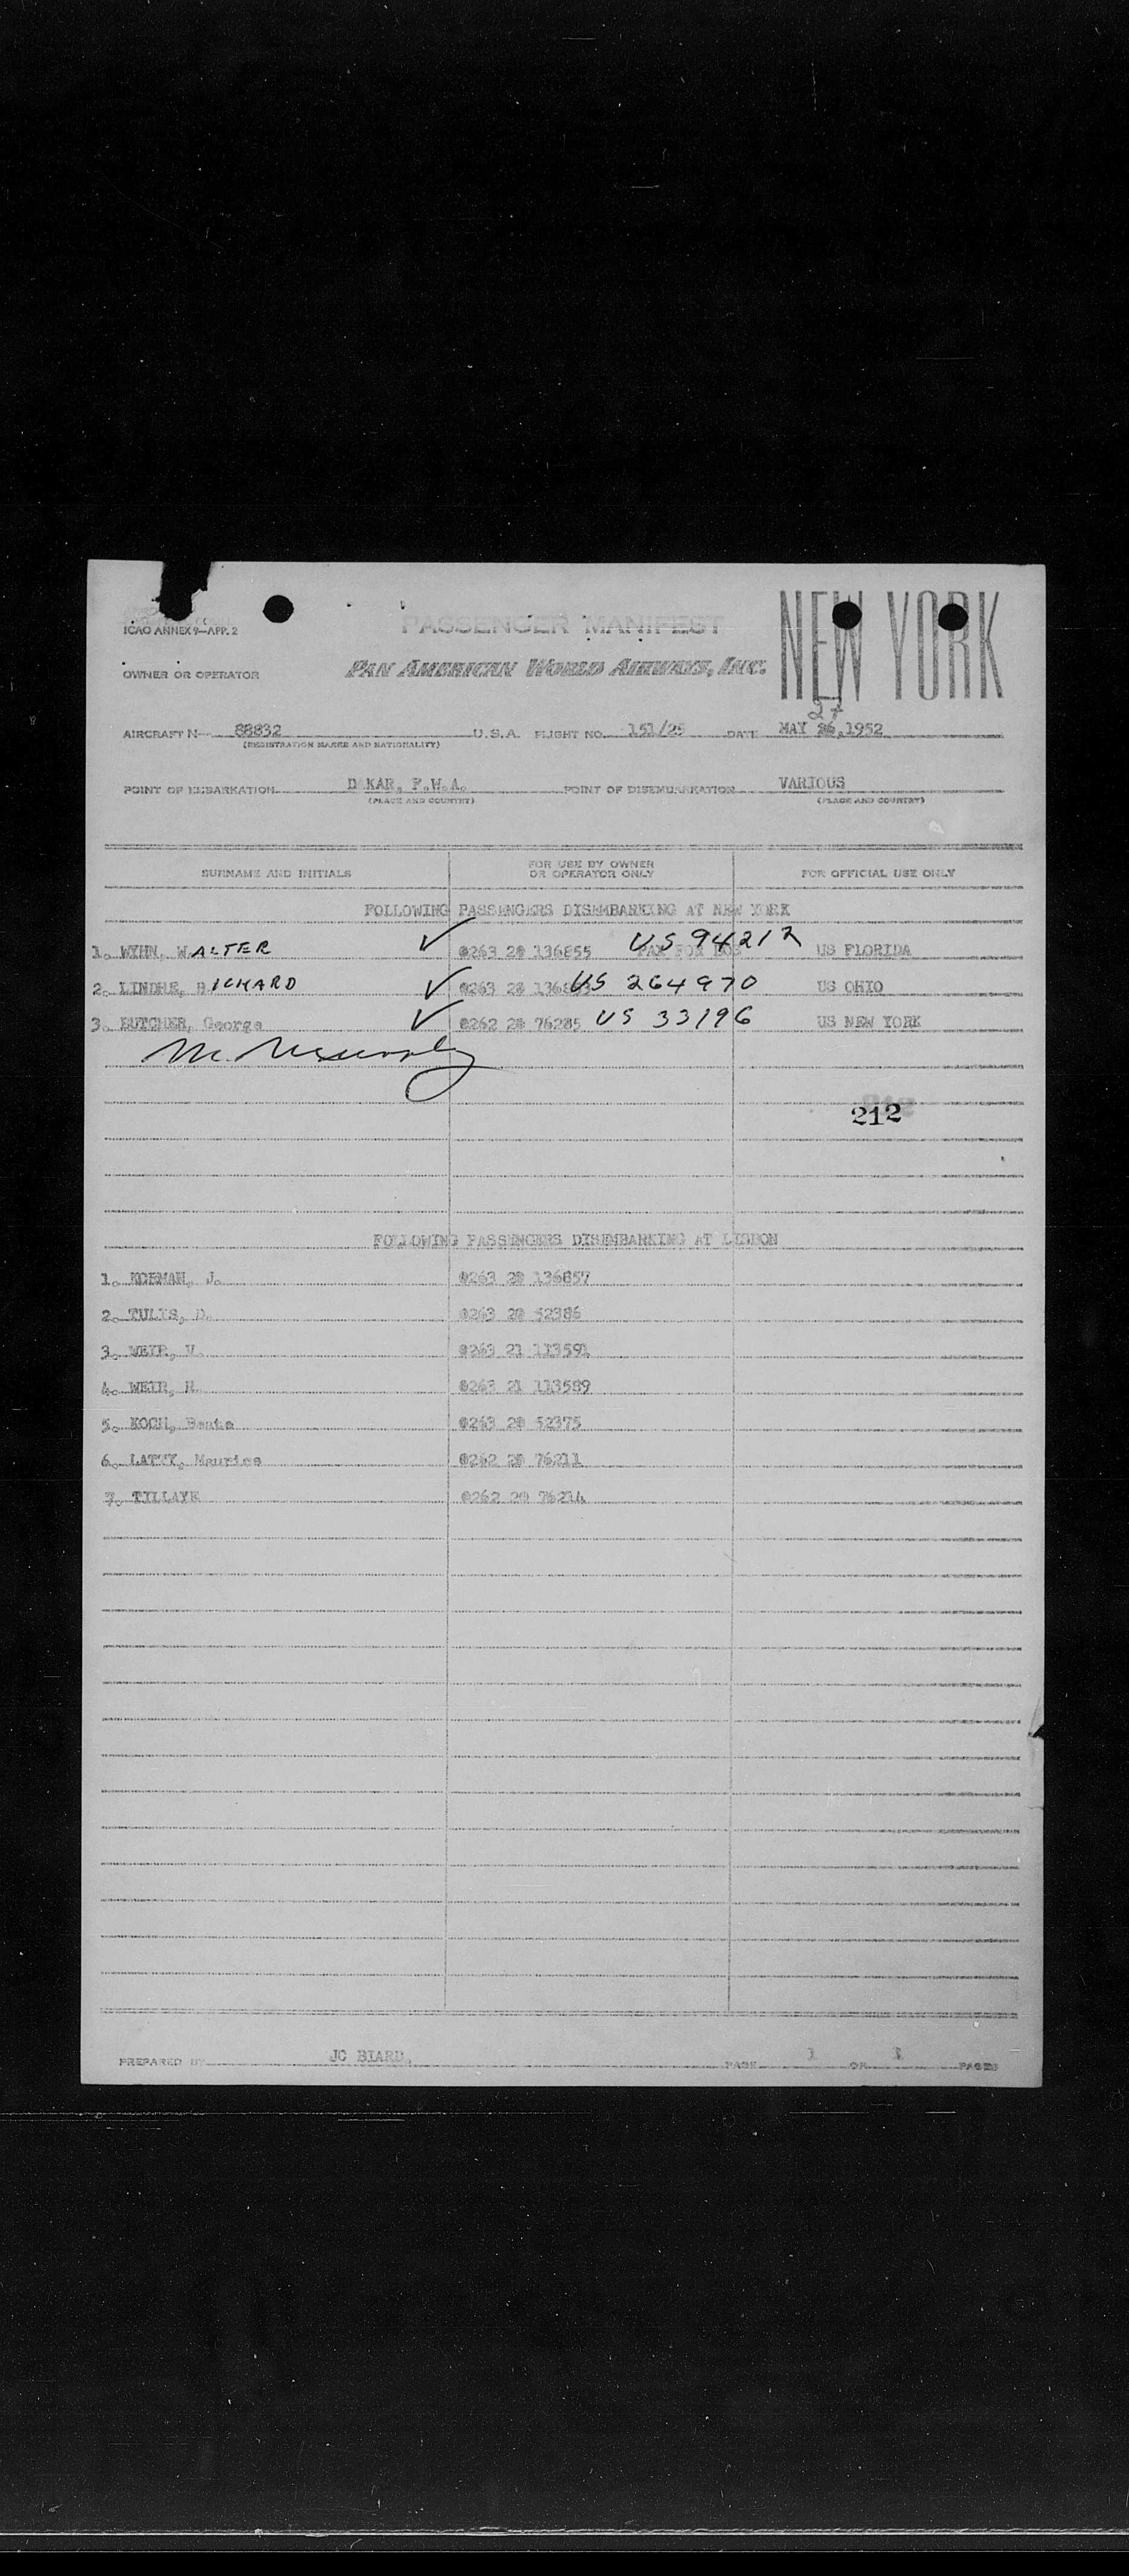 ICAO ANNEX 9—APP. 2
PASSENGER MANIFEST
NEW YORK
OWNER OR OPERATOR
PAN AMERICAN WORLD AIRWAYS, INC.
27
AIRCRAFT N 88832 U.S.A. FLIGHT NO. 151/25 DATE MAY 26, 1952
(REGISTRATION MARKS AND NATIONALITY)
POINT OF EMBARKATION DAKAR, F.W.A. POINT OF DISEMBARKATION VARIOUS
(PLACE AND COUNTRY) (PLACE AND COUNTRY)
SURNAME AND INITIALS FOR USE BY OWNER OR OPERATOR ONLY FOR OFFICIAL USE ONLY
FOLLOWING PASSENGERS DISEMBARKING AT NEW YORK
1. WYHN, WALTER ✓ 0263 20 136855 US 94212 US FLORIDA
2. RICHARD ✓ 0263 US 264970 US OHIO
3. BUTCHER, George ✓ 0262 20 76285 US 33196 US NEW YORK
212
FOLLOWING PASSENGERS DISEMBARKING AT LISBON
1. KORMAN, J. 0263 20 136857
2. TULIS, D. 0263 20 52386
3. WEIR, V. 0263 21 113591
4. WEIR, H. 0263 21 113589
5. KOCH, 0263 20 52375
6. Maurice 0262 20 76211
7. TILLAYE 0262 20 76214
PREPARED BY JC BIARD. PAGE 1 OF 1 PAGES